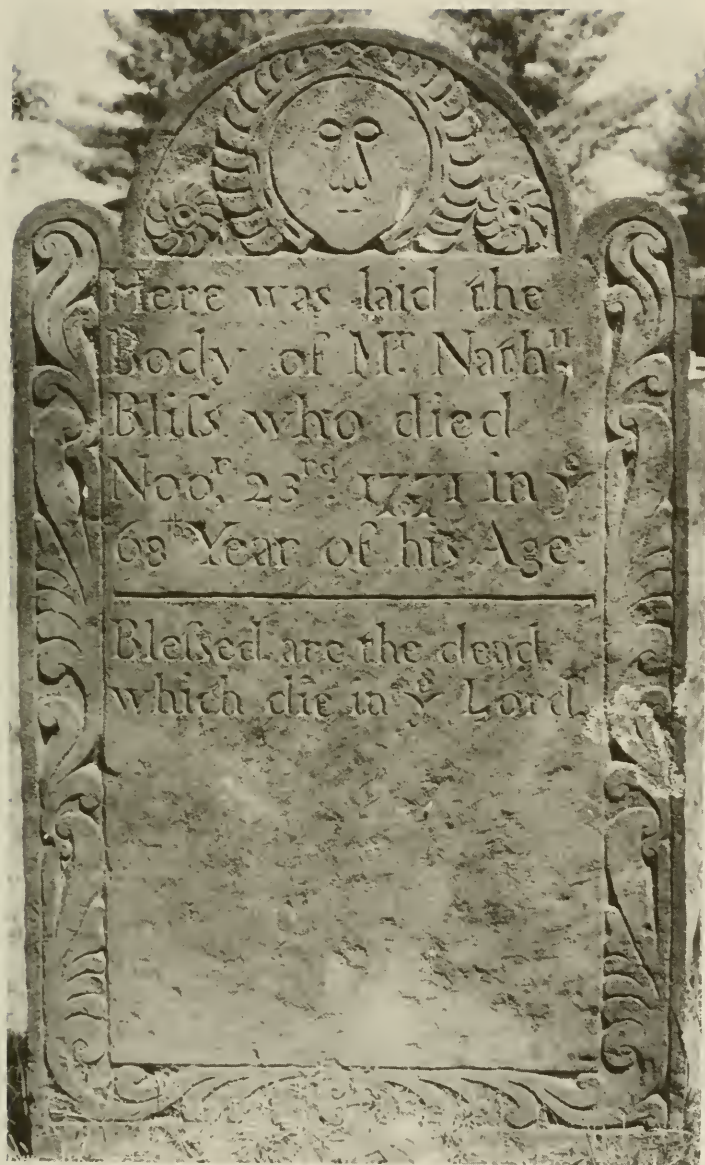 Here was laid the
Body of Mʳ. Nathˡˡ,
Bliſs who died
Nooʳ, 23ʳᵈ. 1771 in yᵉ
68ᵗʰ Year of his Age.
Bleſsed are the dead
which die in yᵉ Lord.